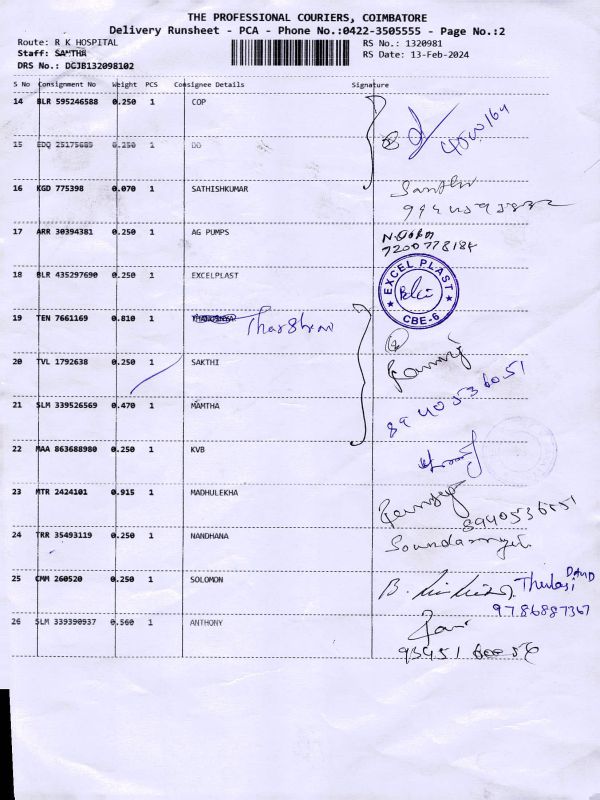 THE PROFESSIONAL COURIERS, COIMBATORE
Delivery Runsheet - PCA - Phone No.:0422-3505555 - Page No.:2
Route: R K HOSPITAL RS No.: 1320981
Staff: SAMTHA RS Date: 13-Feb-2024
DRS No.: DGJB132098102
S No Consignment No Weight PCS Consignee Details Signature
14 BLR 595246588 0.250 1 COP
15 EDQ 25175685 0.250 1 DD
16 KGD 775398 0.070 1 SATHISHKUMAR
17 ARR 30394381 0.250 1 AG PUMPS
7200778184
18 BLR 435297690 0.250 1 EXCELPLAST
EXCEL PLAST
CBE-6
19 TEN 7661169 0.810 1
20 TVL 1792638 0.250 1 SAKTHI
21 SLM 339526569 0.470 1 MAMTHA
8940536051
22 MAA 863688980 0.250 1 KVB
23 MTR 2424101 0.915 1 MADHULEKHA
8940536051
24 TRR 35493119 0.250 1 NANDHANA
25 CMM 260520 0.250 1 SOLOMON
Thulasi
9786887367
26 SLM 339390937 0.560 1 ANTHONY